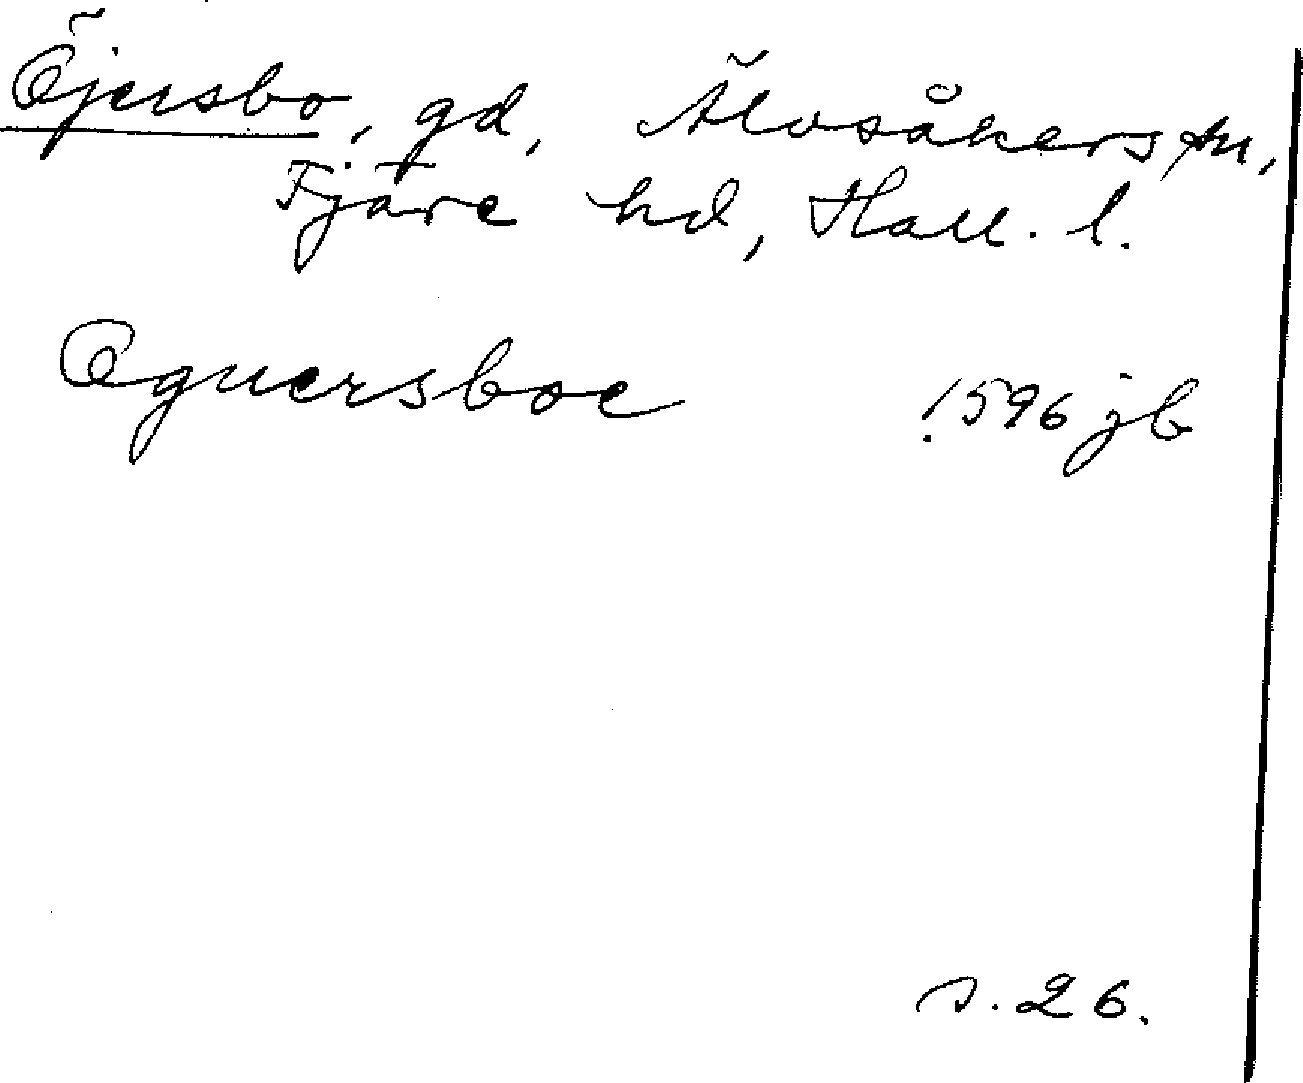 Öjersbo, gd, Älvsåkers sn,
Fjäre hd, Hall. l.
Øgnersboe 1596 jb
s. 26.